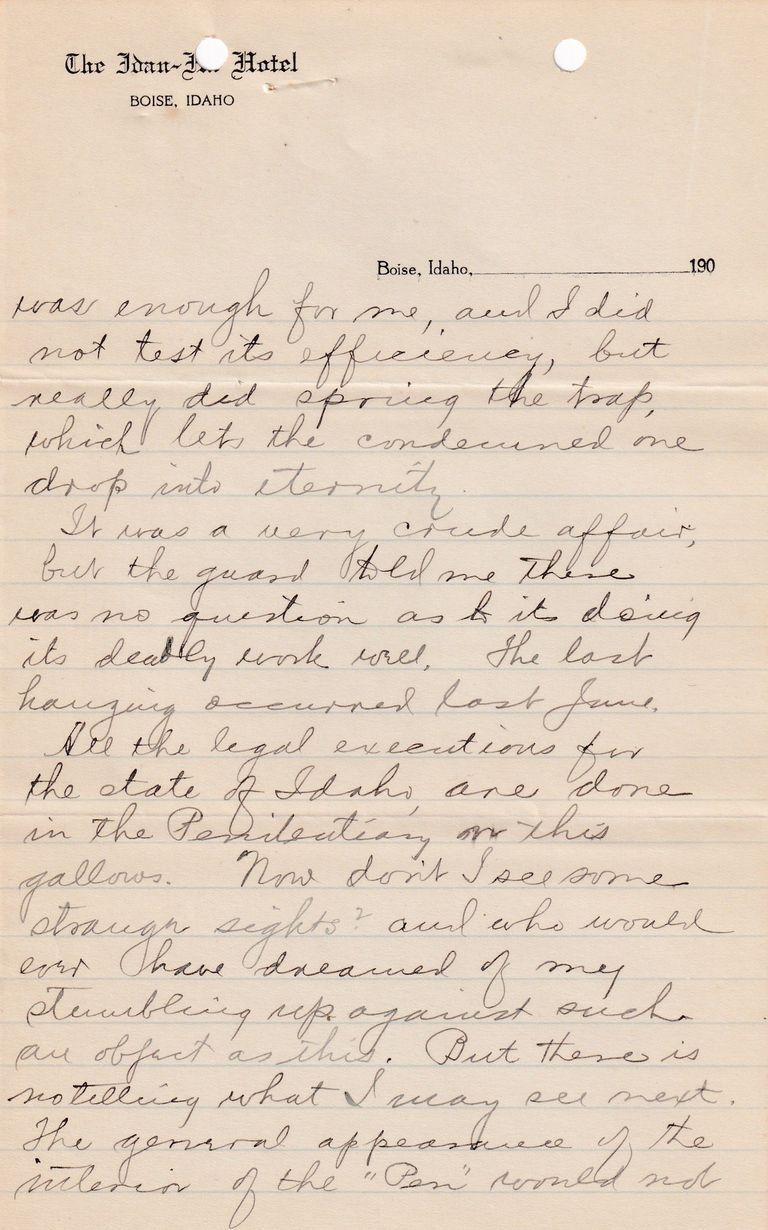 The Idan-Ha Hotel
BOISE, IDAHO
Boise, Idaho, 190
was enough for me, and I did
not test its efficiency, but
really did spring the trap,
which lets the condemned one
drop into eternity.
It was a very crude affair,
but the guard told me there
was no question as to its doing
its deadly work well. The last
hanging occurred last June.
All the legal executions for
the state of Idaho, are done
in the Penitentiary on this
gallows. Now don't I see some
strange sights? and who would
ever have dreamed of my
stumbling up against such
an object as this. But there is
no telling what I may see next.
The general appearance of the
interior of the "Pen" would not